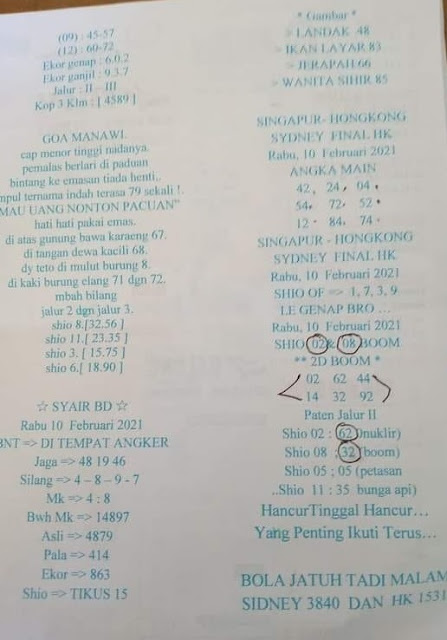 (09) : 45-57
(12) : 60-72
Ekor genap : 6.0.2
Ekor ganjil : 9.3.7
Jalur : II - III
Kop 3 Klm : [ 4589 ]
GOA MANAWI.
cap menor tinggi nadanya.
pemalas berlari di paduan
bintang ke emasan tiada henti,.
mpul ternama indah terasa 79 sekali !.
MAU UANG NONTON PACUAN"
hati hati pakai emas.
di atas gunung bawa karaeng 67.
di tangan dewa kacili 68.
dy teto di mulut burung 8.
di kaki burung elang 71 dgn 72.
mbah bilang
jalur 2 dgn jalur 3.
shio 8.[32.56 ]
shio 11.[ 23.35 ]
shio 3. [ 15.75 ]
shio 6.[ 18.90 ]
☆ SYAIR BD ☆
Rabu 10 Februari 2021
BNT => DI TEMPAT ANGKER
Jaga => 48 19 46
Silang => 4 – 8 – 9 - 7
Mk => 4 : 8
Bwh Mk => 14897
Asli => 4879
Pala => 414
Ekor => 863
Shio => TIKUS 15
* Gambar *
> LANDAK 48
> IKAN LAYAR 83
> JERAPAH 66
> WANITA SIHIR 85
SINGAPUR- HONGKONG
SYDNEY FINAL HK
Rabu, 10 Februari 2021
ANGKA MAIN
42, 24, 04 •
54, 72, 52 •
12 • 84, 74 •
SINGAPUR - HONGKONG
SYDNEY FINAL HK
Rabu, 10 Februari 2021
SHIO OF => 1, 7, 3, 9
LE GENAP BRO …
Rabu, 10 Februari 2021
SHIO 02 & 08 BOOM
** 2D BOOM *
02 62 44
14 32 92
Paten Jalur II
Shio 02 : 62 )nuklir)
Shio 08 ; 32 (boom)
Shio 05 ; 05 (petasan
..Shio 11 : 35 bunga api)
HancurTinggal Hancur…
Yang Penting Ikuti Terus…
BOLA JATUH TADI MALAM
SIDNEY 3840 DAN HK 1531